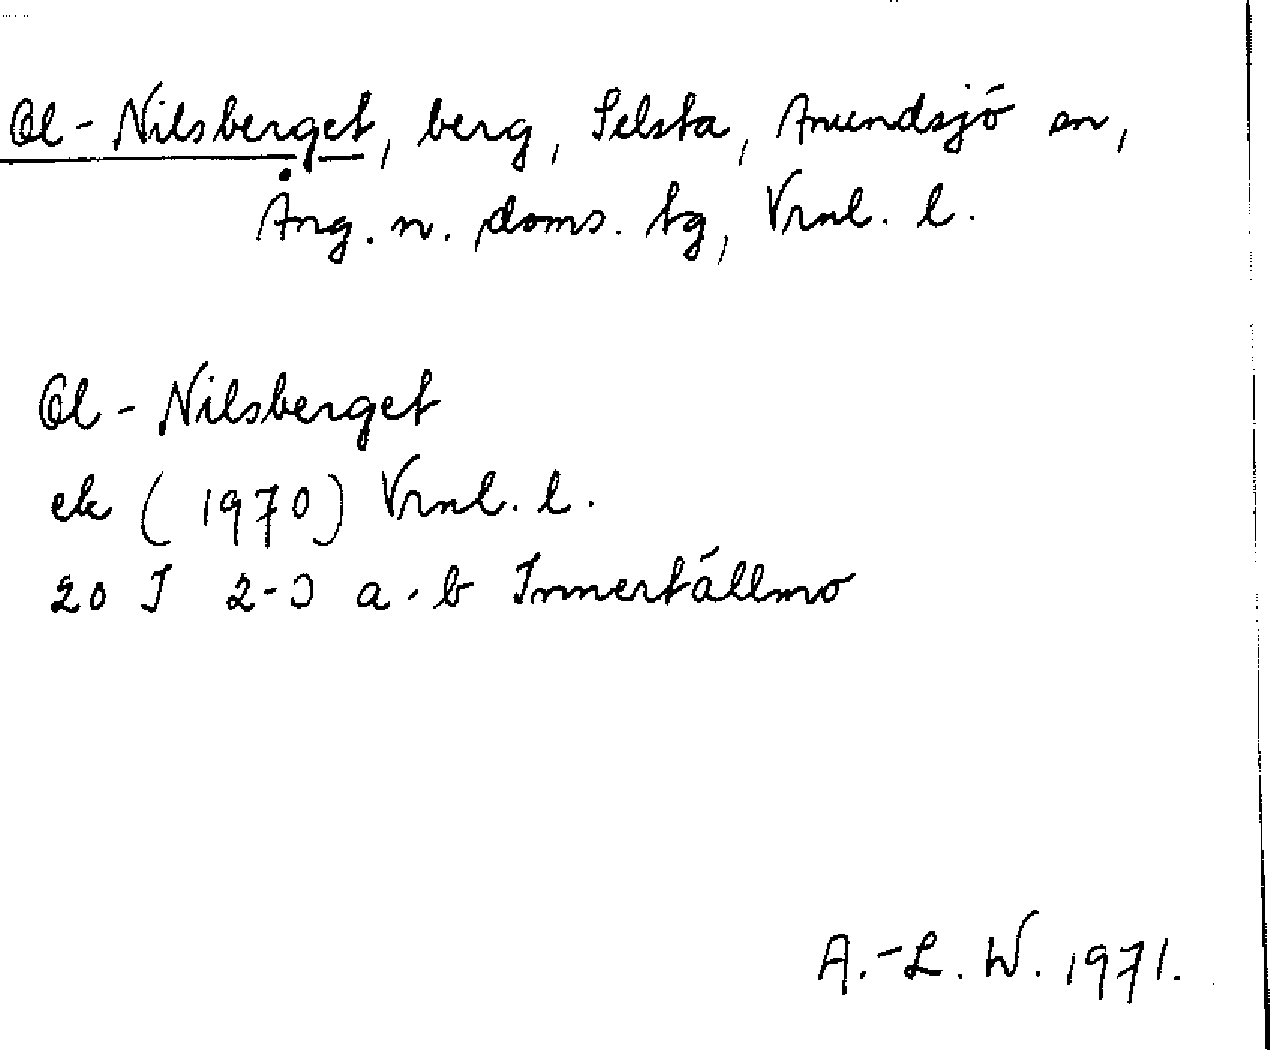 Ol-Nilsberget, berg, Selsta, Anundsjö sn,
Ång. n. doms. tg, Vrnl. l.
Ol-Nilsberget
ek (1970) Vrnl. l.
20 J 2-3 a-b Innertällmo
A.-L. W. 1971.